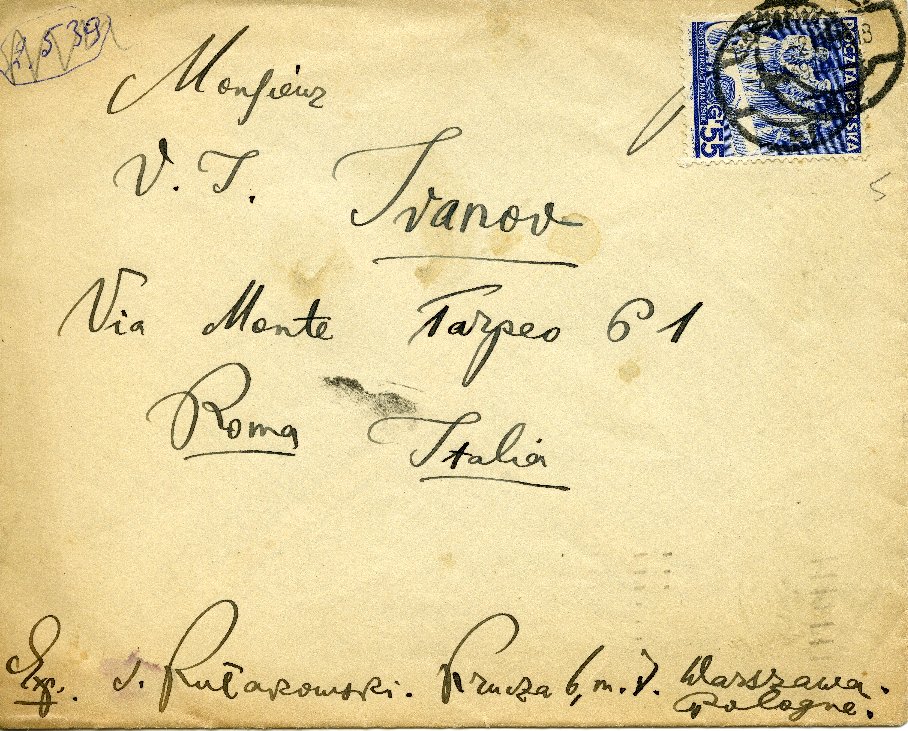 2 5 39
Monsieur
V. I. Ivanov
Via Monte Tarpeo 61
Roma Italia
POCZTA POLSKA
55 G
5
Exp. S. Rułakowski. Krucza 6, m. 7. Warszawa.
Pologne.